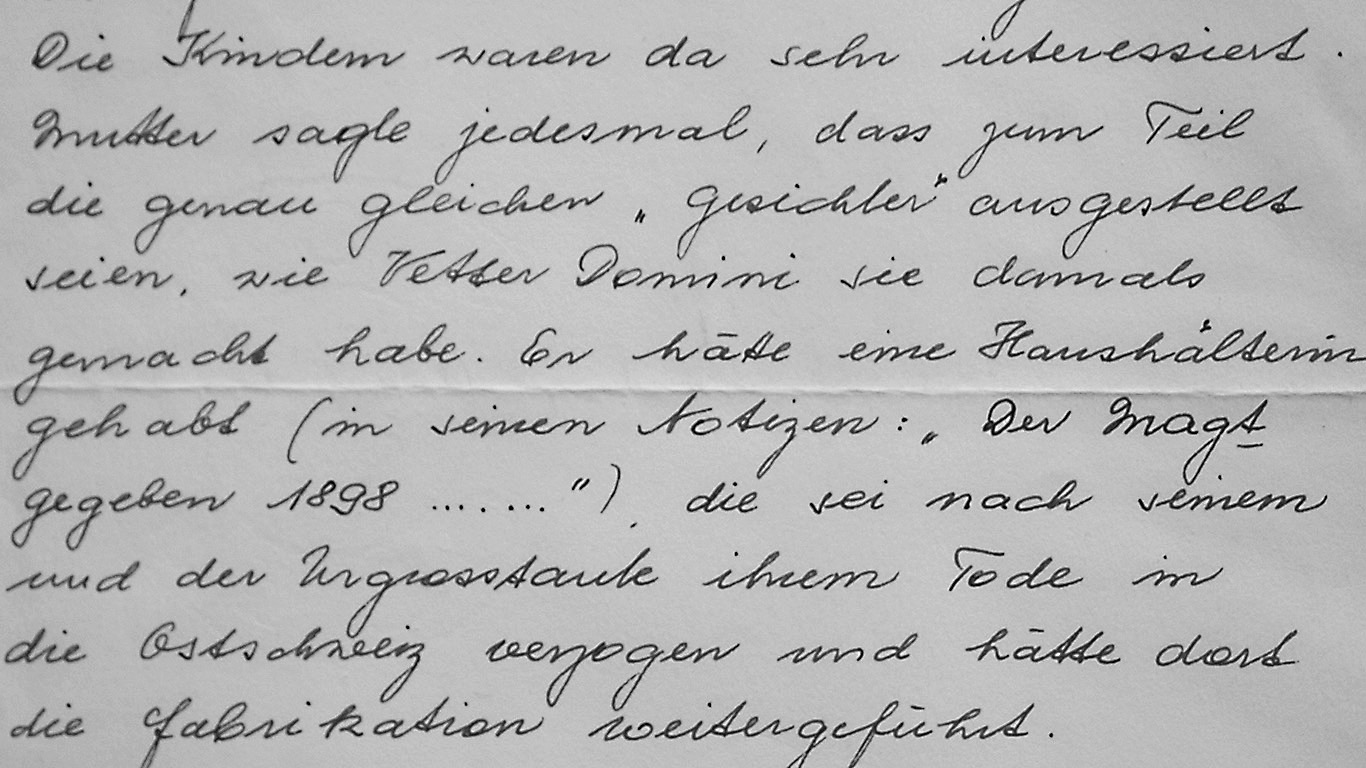 Die Kindern waren da sehr interessiert.
Mutter sagte jedesmal, dass zum Teil
die genau gleichen „Gesichter" ausgestellt
seien, wie Vetter Domini sie damals
gemacht habe. Er hätte eine Haushälterin
gehabt (in seinen Notizen: „Der Magt
gegeben 1898 ......"), die sei nach seinem
und der Urgrosstante ihrem Tode in
die Ostschweiz verzogen und hätte dort
die Fabrikation weitergeführt.